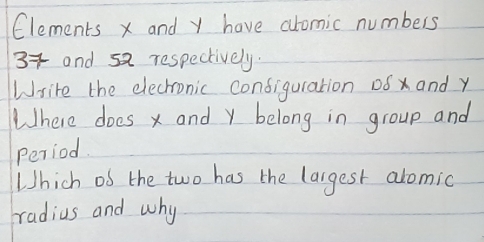 Elements x and y have atomic numbers
37 and 52 respectively.
Write the electronic configuration of x and y
Where does x and y belong in group and
period.
Which of the two has the largest atomic
radius and why